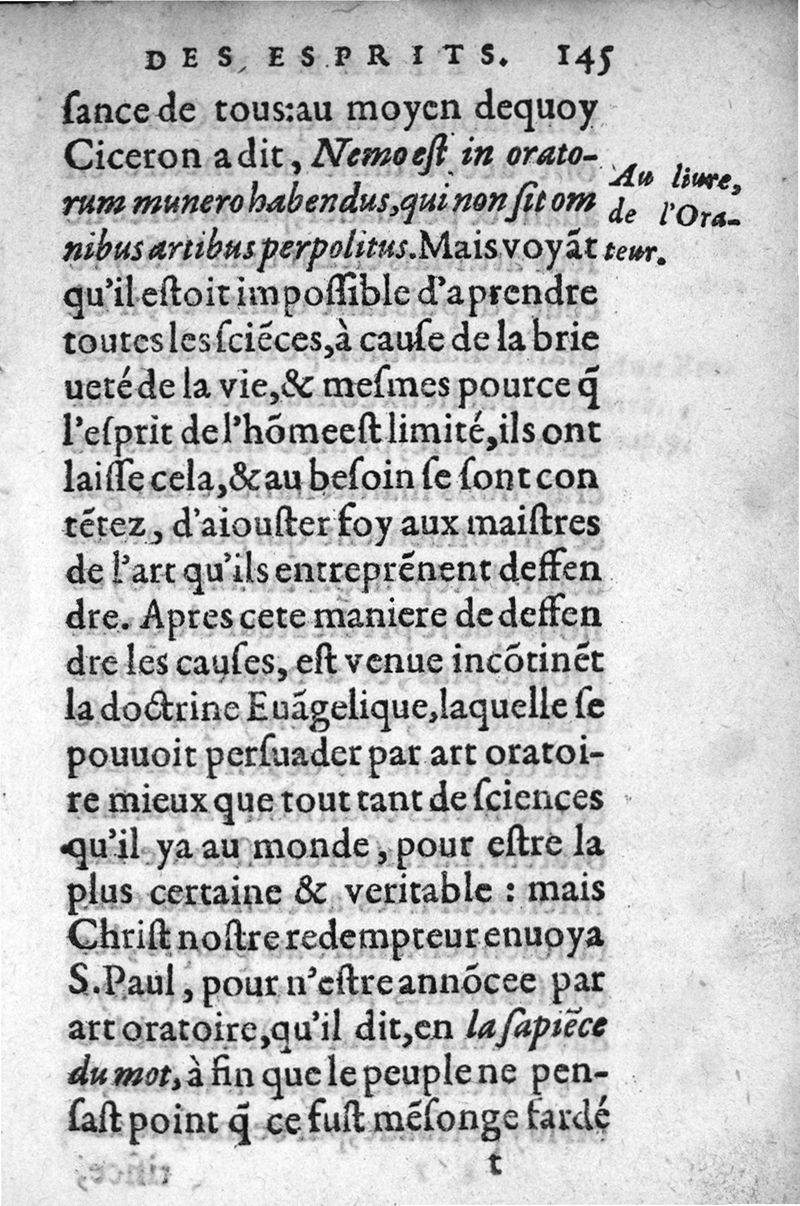 DES ESPRITS. 145
ſance de tous:au moyen dequoy
Ciceron a dit, Nemo eſt in orato-
rum munero habendus, qui non ſit om
nibus artibus perpolitus. Mais voyãt
qu'il eſtoit impoſſible d'aprendre
toutes les ſciẽces, à cauſe de la brie
ueté de la vie, & meſmes pource q̃
l'eſprit de l'hõme eſt limité, ils ont
laiſſe cela, & au beſoin ſe ſont con
tẽtez, d'aiouſter foy aux maiſtres
de l'art qu'ils entreprẽnent deffen
dre. Apres cete maniere de deffen
dre les cauſes, eſt venue incõtinẽt
la doctrine Euãgelique, laquelle ſe
pouuoit perſuader par art oratoi-
re mieux que tout tant de ſciences
qu'il y a au monde, pour eſtre la
plus certaine & veritable : mais
Chriſt noſtre redempteur enuoya
S. Paul, pour n'eſtre annõcee par
art oratoire, qu'il dit, en la ſapiẽce
du mot, à fin que le peuple ne pen-
ſaſt point q̃ ce fuſt mẽſonge fardé
t
Au liure,
de l'Ora-
teur.